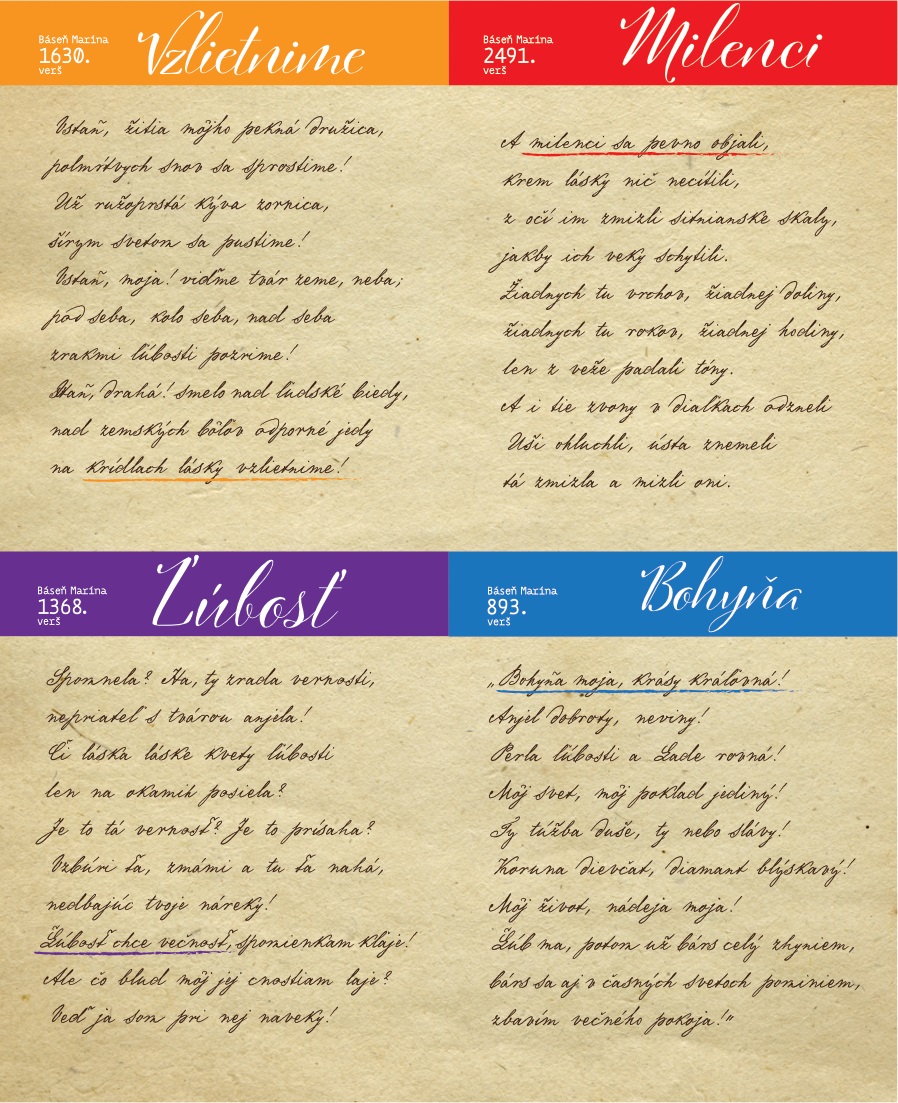 Báseň Marína
1630.
verš
Vzlietnime
Vstaň, žitia môjho pekná družica,
polmŕtvych snov sa sprostime!
Už ružoprstá kýva zornica,
šírym svetom sa pustime!
Vstaň, moja! viďme tvár zeme, neba;
pod seba, kolo seba, nad seba
zrakmi ľúbosti pozrime!
Staň, drahá! smelo nad ľudské biedy,
nad zemských bôľov odporné jedy
na krídlach lásky vzlietnime!
Báseň Marína
2491.
verš
Milenci
A milenci sa pevno objali,
krem lásky nič necítili,
z očí im zmizli sitnianske skaly,
jakby ich veky schytili.
Žiadnych tu vrchov, žiadnej doliny,
žiadnych tu rokov, žiadnej hodiny,
len z veže padali tóny.
A i tie zvony v diaľkach odzneli
Uši ohluchli, ústa znemeli
tá zmizla a mizli oni.
Báseň Marína
1368.
verš
Ľúbosť
Spomnela? Ha, ty zrada vernosti,
nepriateľ s tvárou anjela!
Či láska láske kvety ľúbosti
len na okamih posiela?
Je to tá vernosť? Je to prísaha?
Vzbúri ťa, zmámi a tu ťa nahá,
nedbajúc tvoje náreky!
Ľúbosť chce večnosť, spomienkam kľaje!
Ale čo blud môj jej cnostiam laje?
Veď ja som pri nej naveky!
Báseň Marína
893.
verš
Bohyňa
„Bohyňa moja, krásy kráľovná!
Anjel dobroty, neviny!
Perla ľúbosti a Lade rovná!
Môj svet, môj poklad jediný!
Ty túžba duše, ty nebo slávy!
Koruna dievčat, diamant blýskavý!
Môj život, nádeja moja!
Ľúb ma, potom už bárs celý zhyniem,
bárs sa aj v časných svetoch pominiem,
zbavím večného pokoja!"